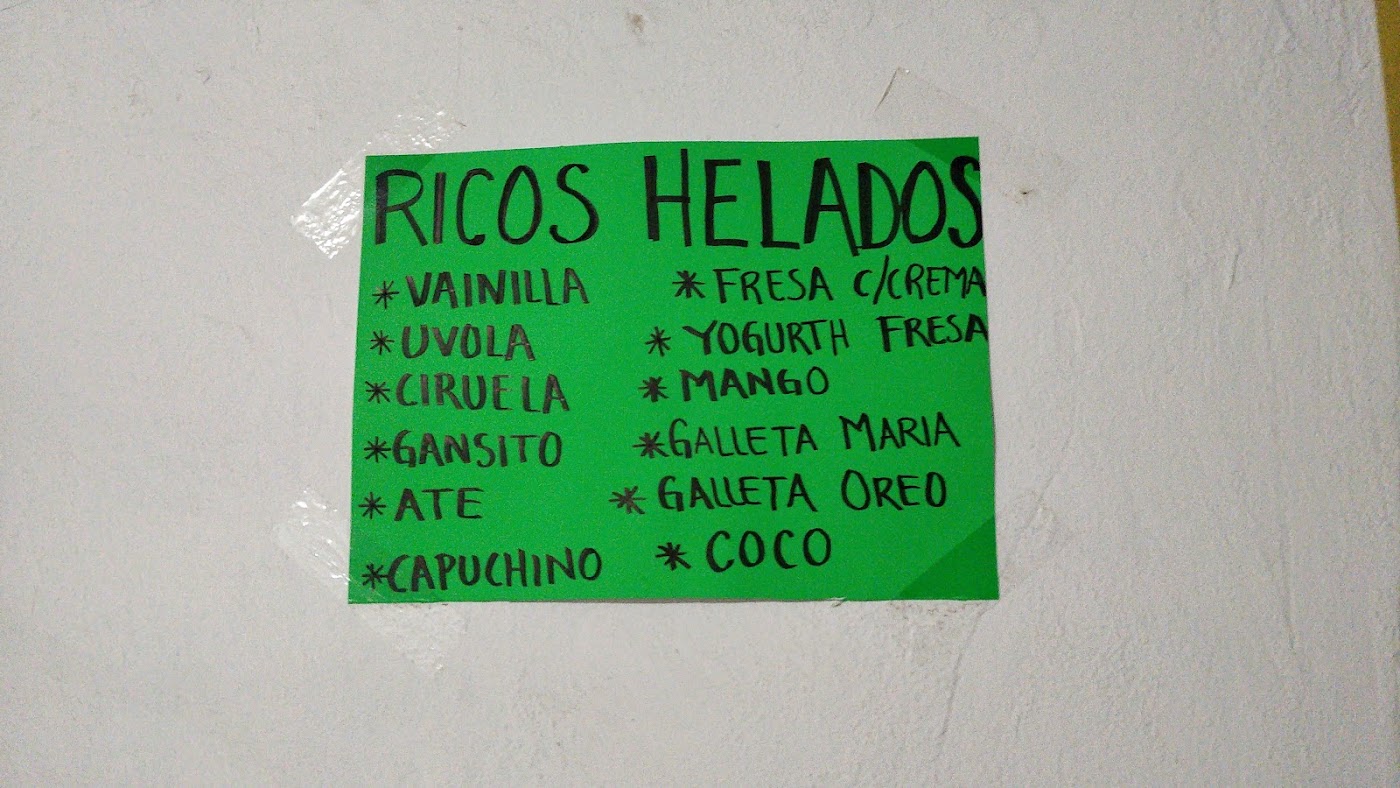 RICOS HELADOS
*VAINILLA
*UVOLA
*CIRUELA
*GANSITO
*ATE
*CAPUCHINO
*FRESA C/CREMA
*YOGURTH FRESA
*MANGO
*GALLETA MARIA
*GALLETA OREO
*COCO